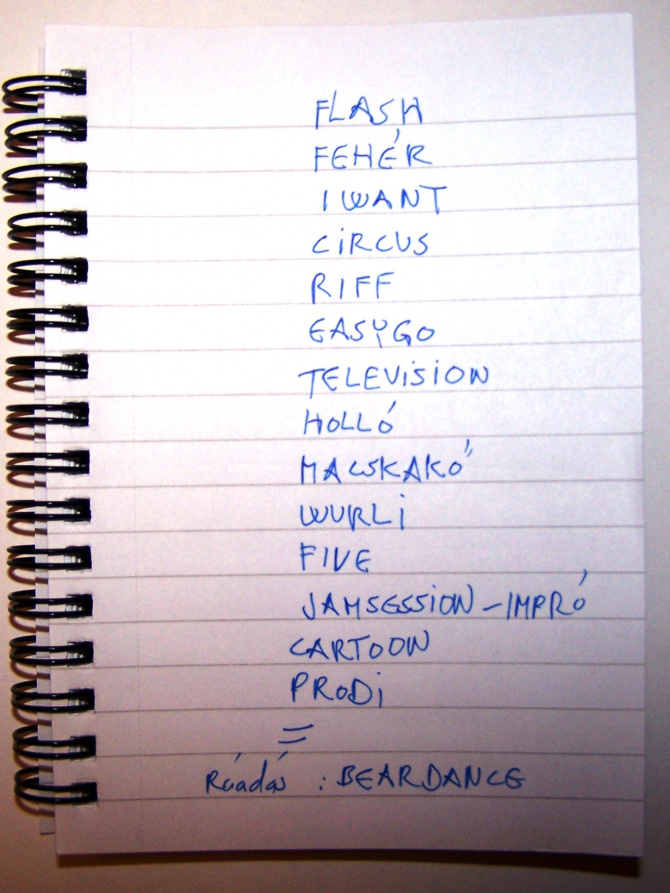 FLASH
FEHÉR
I WANT
CiRCUS
RIFF
EASYGO
TELEViSiON
HOLLÓ
MACSKAKŐ
WURLi
FIVE
JAMSESSION - IMPRÓ
CARTOON
PRODi
=
Ráadás : BEARDANCE